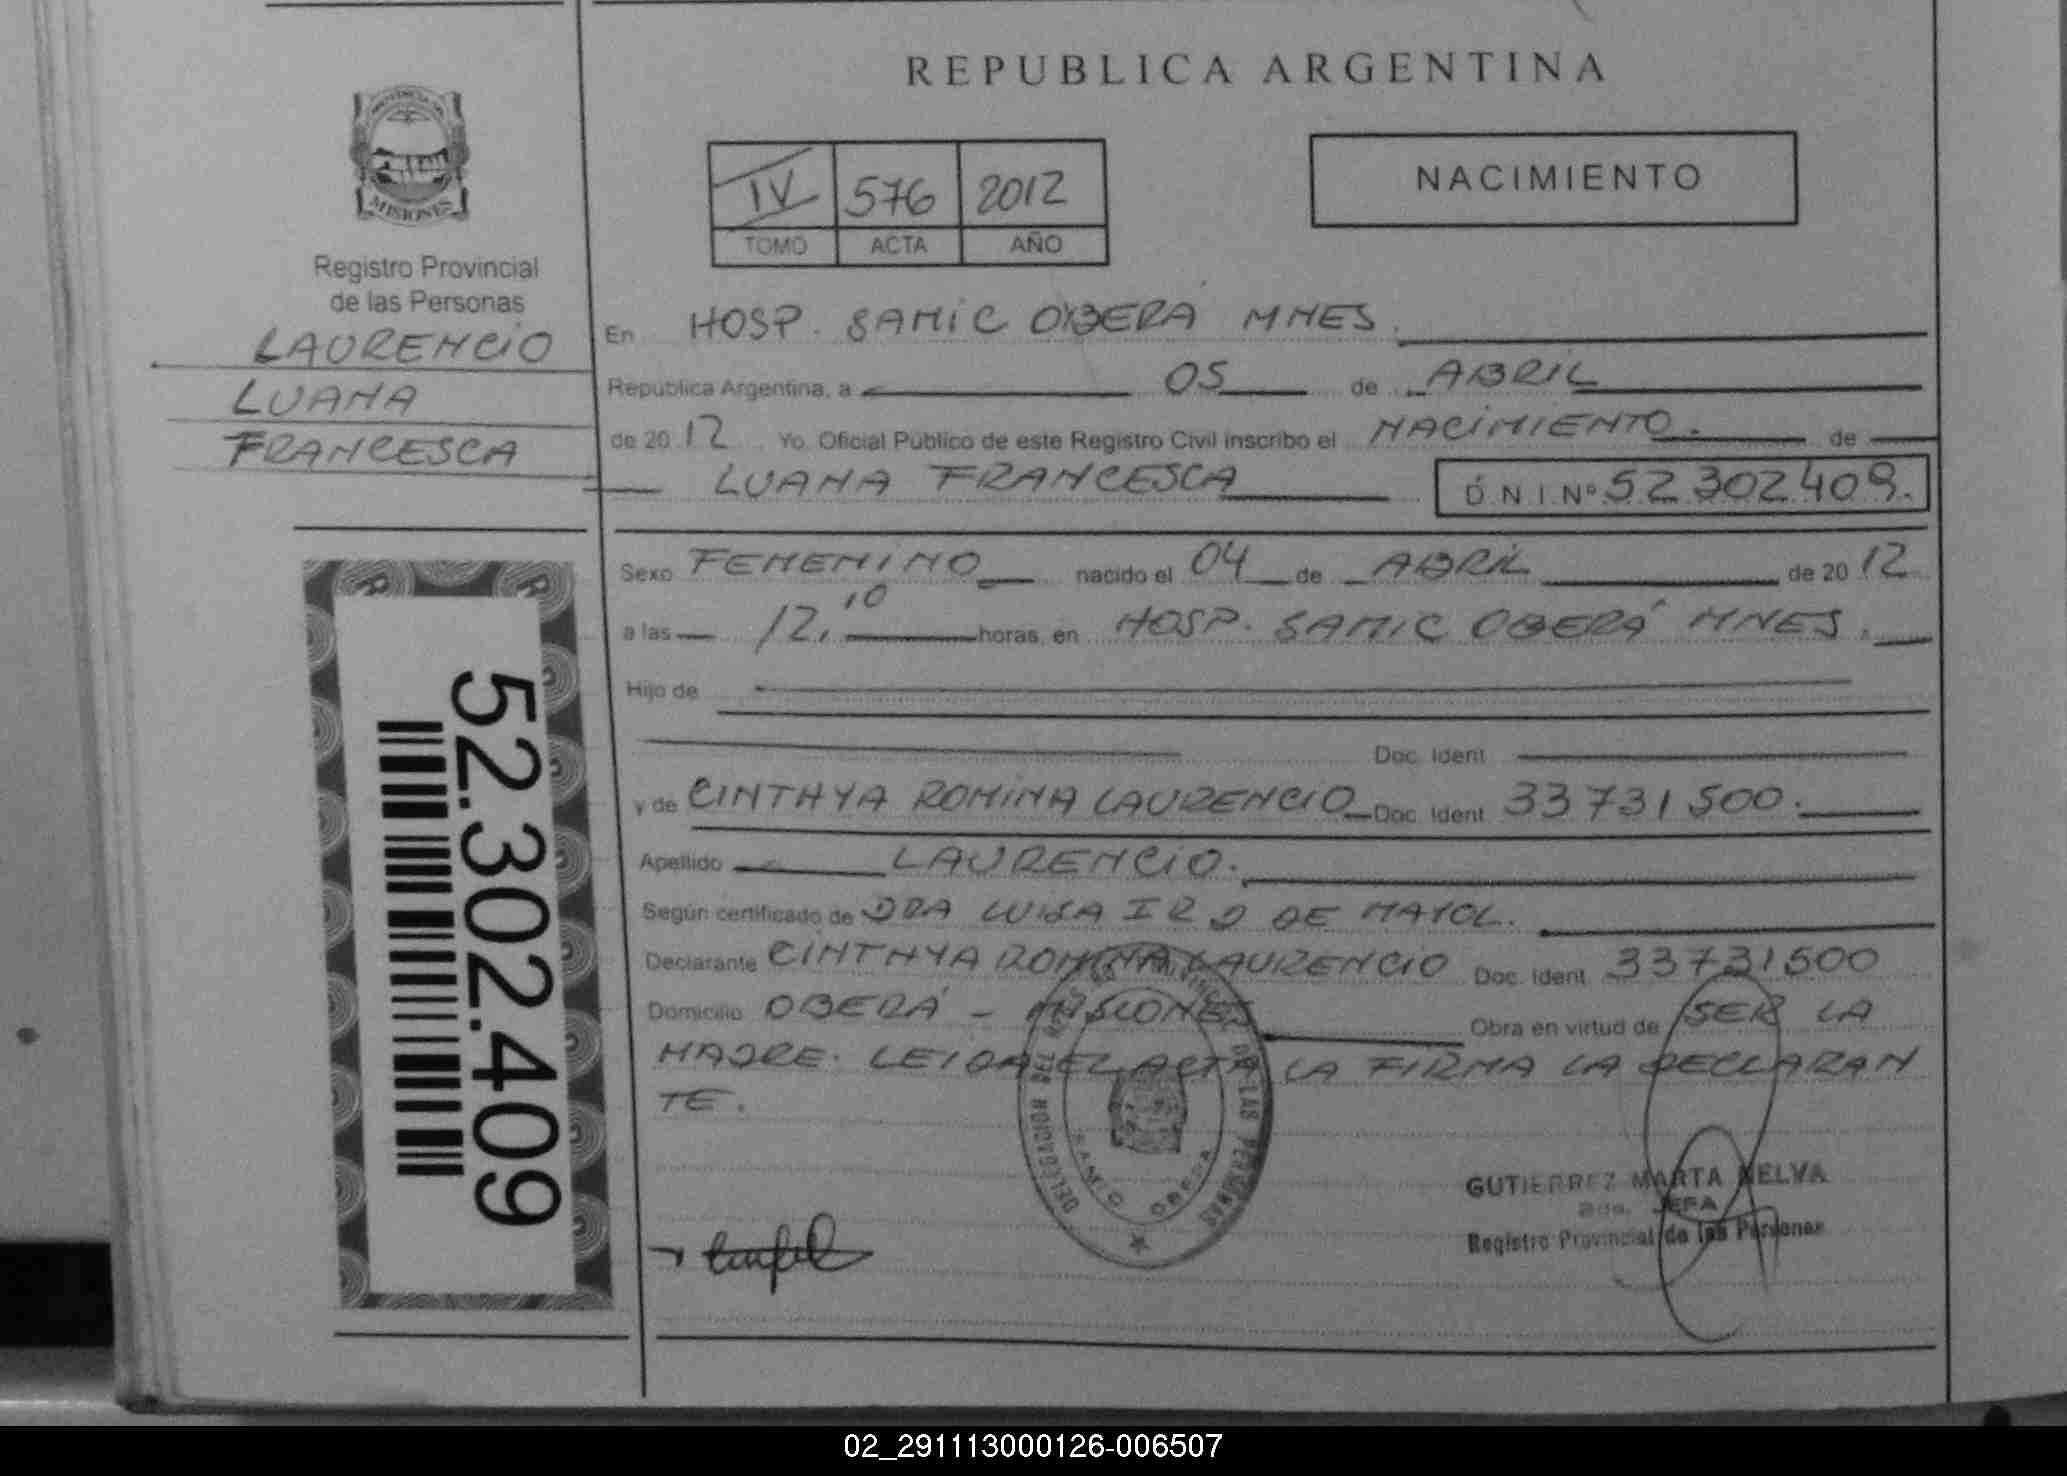 REPUBLICA ARGENTINA
PROVINCIA DE
MISIONES
Registro Provincial
de las Personas
LAURENCIO
LUANA
FRANCESCA
52.302.409
IV 576 2012
TOMO ACTA AÑO
NACIMIENTO
En HOSP. SAMIC OBERÁ MNES.
Republica Argentina, a 05 de ABRIL
de 20 12 Yo. Oficial Público de este Registro Civil inscribo el NACIMIENTO. de
LUANA FRANCESCA D.N.I.Nº 52 302 409.
Sexo FEMENINO nacido el 04 de ABRIL de 20 12
a las 12,10 horas, en HOSP. SAMIC OBERÁ MNES.
Hijo de
Doc. Ident
y de CINTHYA ROMINA LAURENCIO Doc. Ident 33 731 500.
Apellido LAURENCIO.
Según certificado de DRA LUISA DE MAYOL.
Declarante CINTHYA ROMINA LAURENCIO Doc. Ident 33731500
Domicilio OBERÁ - MISIONES Obra en virtud de SER LA
MADRE. LEIDA EL ACTA LA FIRMA LA DECLARAN
TE.
DELEGACION DEL DE LAS PERSONAS
SAMIC OBERA
GUTIERREZ MARTA NELVA
JEFA
Registro Provincial de las Personas
02_291113000126-006507